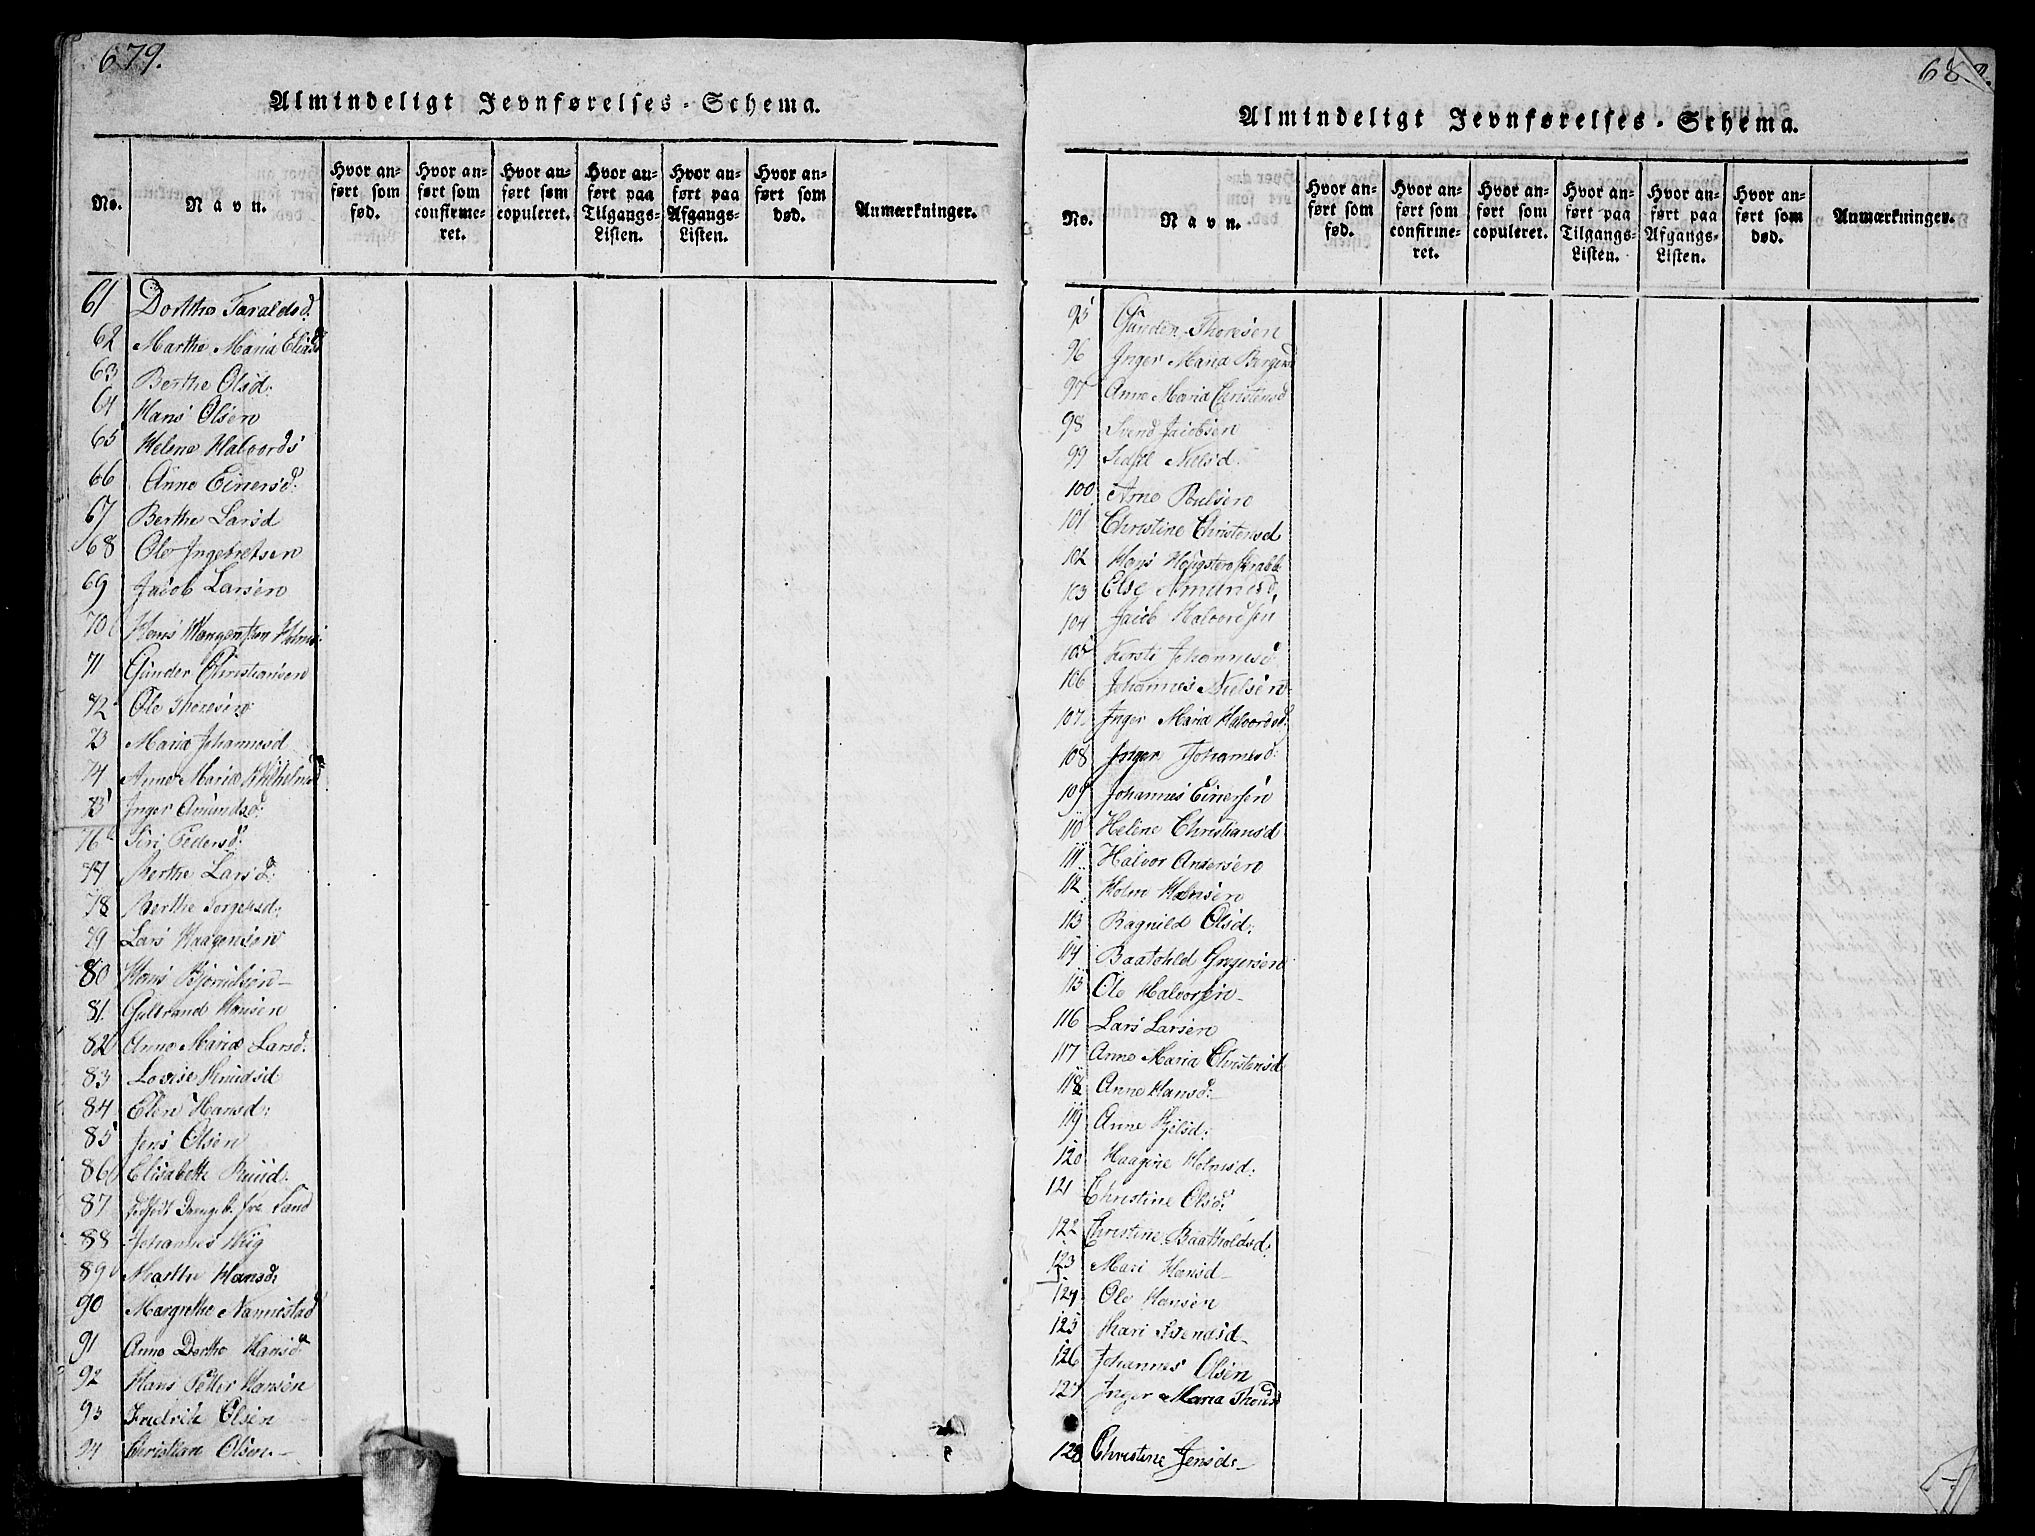 679.
Almindeligt Jevnførelses-Schema.
No.
Navn.
Hvor an-
ført som
fød.
Hvor an-
ført som
confirme-
ret.
Hvor an-
ført som
copuleret.
Hvor an-
ført paa
Tilgangs-
Listen.
Hvor an-
ført paa
Afgangs-
Listen.
Hvor an-
ført som
død.
Anmærkninger.
61 Dorthe Taraldsd.
62 Marthe Maria Eliasd
63 Berthe Olsd.
64 Hans Olsen
65 Helene Halvords
66 Anne Einersd.
67 Berthe Larsd
68 Ole Ingebretsen
69 Jacob Larsen
70 Hans
71 Gunder Christiansen
72 Ole Thoresen
73 Maria Johannesd
74 Anne Maria Wilhelmsd
75 Inger Amundsd.
76 Siri Pedersd.
77 Berthe Larsd.
78 Berthe Torgersd.
79 Lars Haagensen
80 Hans Bjørnsen
81. Gulbrand Hansen
82 Anne Maria Larsd.
83 Lovise Knudsd
84 Elen Hansd:
85 Jens Olsen
86 Elisabethe Ruud.
87 fra Sand
88 Johannes Wiig
89 Marthe Hansd.
90 Margrethe Nannestad
91 Anne Dorthe Hansd.
92 Hans Petter Hansen
93 Fredrik Olsen
94 Christian Olsen.
Almindeligt Jevnførelses-Schema.
No.
Navn.
Hvor an-
ført som
fød.
Hvor an-
ført som
confirme-
ret.
Hvor an-
ført som
copuleret.
Hvor an-
ført paa
Tilgangs-
Listen.
Hvor an-
ført paa
Afgangs-
Listen.
Hvor an-
ført som
død.
Anmærkninger.
95 Gunder Thoresen
96 Inger Maria
97 Anne Maria Christensd
98 Svend Jacobsen
99 Nielsd.
100 Arne Poulsen
101 Christine Christensd
102 Hans
103 Else Amundsd.
104 Jacob Halvordsen
105 Kersti Johannesd.
106 Johannes Nielsen
107. Inger Maria Halvordsd.
108 Inger Johannesd.
109 Johannes Einersen
110 Helene Christiansd
111 Halvor Andersen
112 Holm Hansen
113 Ragnild Olsd.
114 Gregersen
115 Ole Halvorsen
116 Lars Larsen
117 Anne Maria Christensd
118 Anne Hansd.
119 Anne
120 Haagine Holmsd.
121 Christine Olsd.
122 Christine Baatholdsd.
123 Mari Hansd
124 Ole Hansen
125 Mari Svendsd
126 Johannes Olsen
127 Inger Maria
128 Christine Jensd.